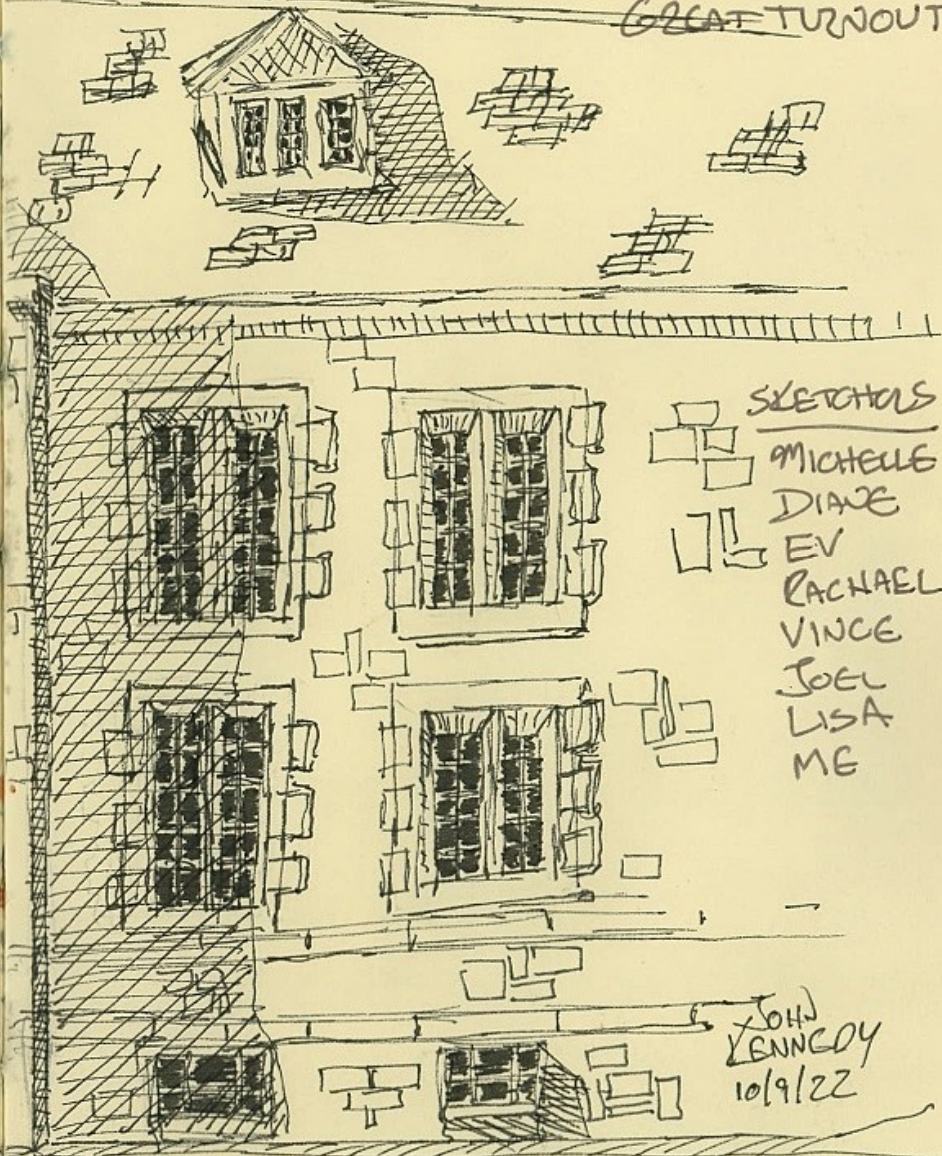 GREAT TURNOUT
SKETCHERS
MICHELLE
DIANE
EV
RACHAEL
VINCE
JOEL
LISA
ME
JOHN
KENNEDY
10/9/22